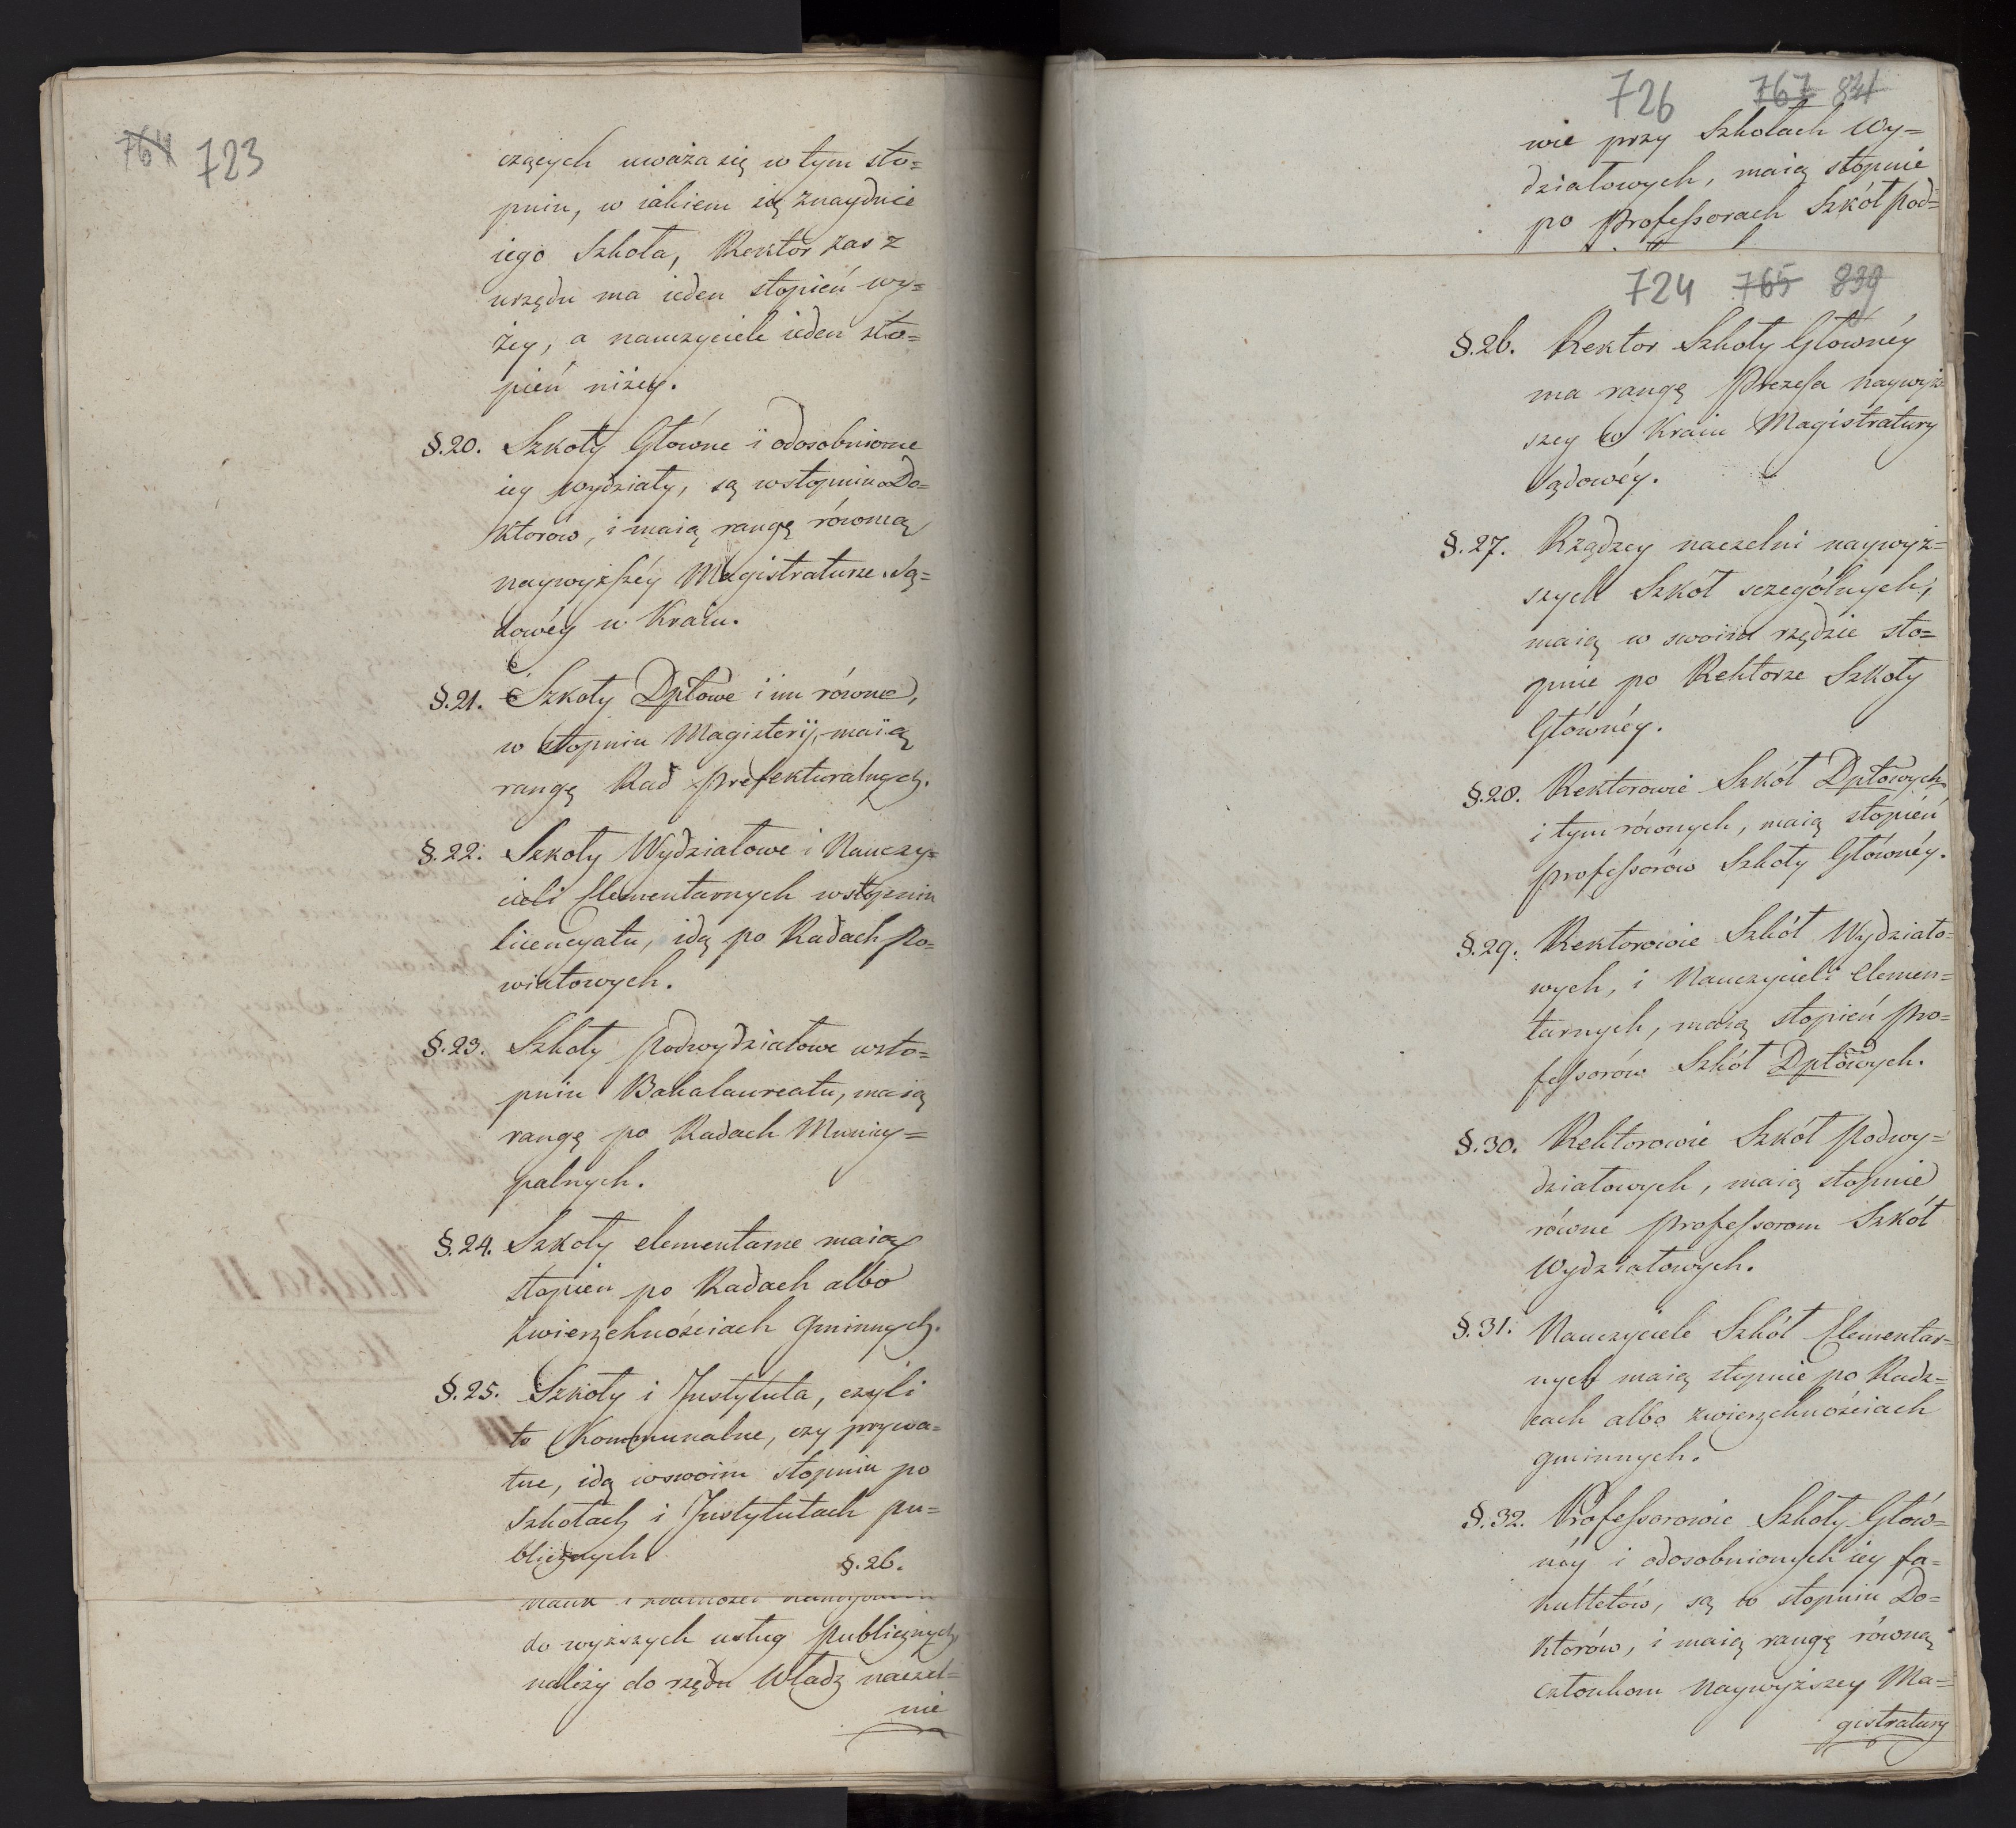 764 723
czących uważa się w tym sto=
pniu, w iakiem się znayduie
iego Szkoła, Rektor zas z
urzędu ma ieden stopień wy=
żey, a nauczyciele ieden sto=
pień niżey.
§.20. Szkoły Główne i odosobnione
iey wydziały, są w stopniu Do=
ktorów, i maią rangę równą
naywyższéy Magistraturze Są=
dowéy w Kraiu.
§.21. Szkoły Dptowe i im równe,
w stopniu Magisterij, maią
rangę Rad Prefekturalnych.
§.22. Szkoły Wydziałowe i Nauczy=
cieli Elementarnych w stopniu
licencyatu, idą po Radach Po=
wiatowych.
§.23. Szkoły Podwydziałowe w sto=
pniu Bakalaureatu, maią
rangę po Radach Municy=
palnych.
§.24. Szkoły elementarne maią
stopien po Radach albo
Zwierzchnościach Gminnych.
§.25. Szkoły i Instytuta, czyli
to Kommunalne, czy prywa=
tne, idą w swoim stopniu po
Szkołach i Instytutach pu=
blicznych
§.26.
do wyższych usług publicznych
należy do rzędu Władz naczel=
nie
726 767 841
wie przy Szkołach Wy=
działowych, maią stopnie
po Professorach Szkół Pod=
724 765 839
§.26. Rektor Szkoły Głównéy
ma rangę Prezesa naywyż
szey w Kraiu Magistratury
Sądowéy.
§.27. Rządzcy naczelni naywyż=
szych Szkół sczególnych,
maią w swoim rzędzie sto=
pnie po Rektorze Szkoły
Głównéy.
§.28. Rektorowie Szkół Dptowych
i tym równych, maią stopień
professorów Szkoły Głównéy.
§.29. Rektorowie Szkół Wydziało=
wych, i Nauczycieli Elemen=
tarnych, maią stopień Pro=
fessorów Szkół Dptowych.
§.30. Rektorowie Szkół Podwy=
działowych, maią stopnie
równe Professorom Szkół
Wydziałowych.
§.31. Nauczyciele Szkół Elementar=
nych maią stopnie po Radz=
cach albo zwierzchnościach
gminnych.
§.32. Professorowie Szkoły Głów=
néy i odosobnionych iey fa=
kultetów, są w stopniu Do=
ktorów, i maią rangę równą
członkom Naywyższey Ma=
gistratury